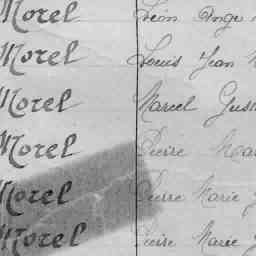 Morel Léon Ange
Morel Louis Jean
Morel Marcel Gus
Morel Pierre Ma
Morel Pierre Marie J
Morel Pierre Marie J